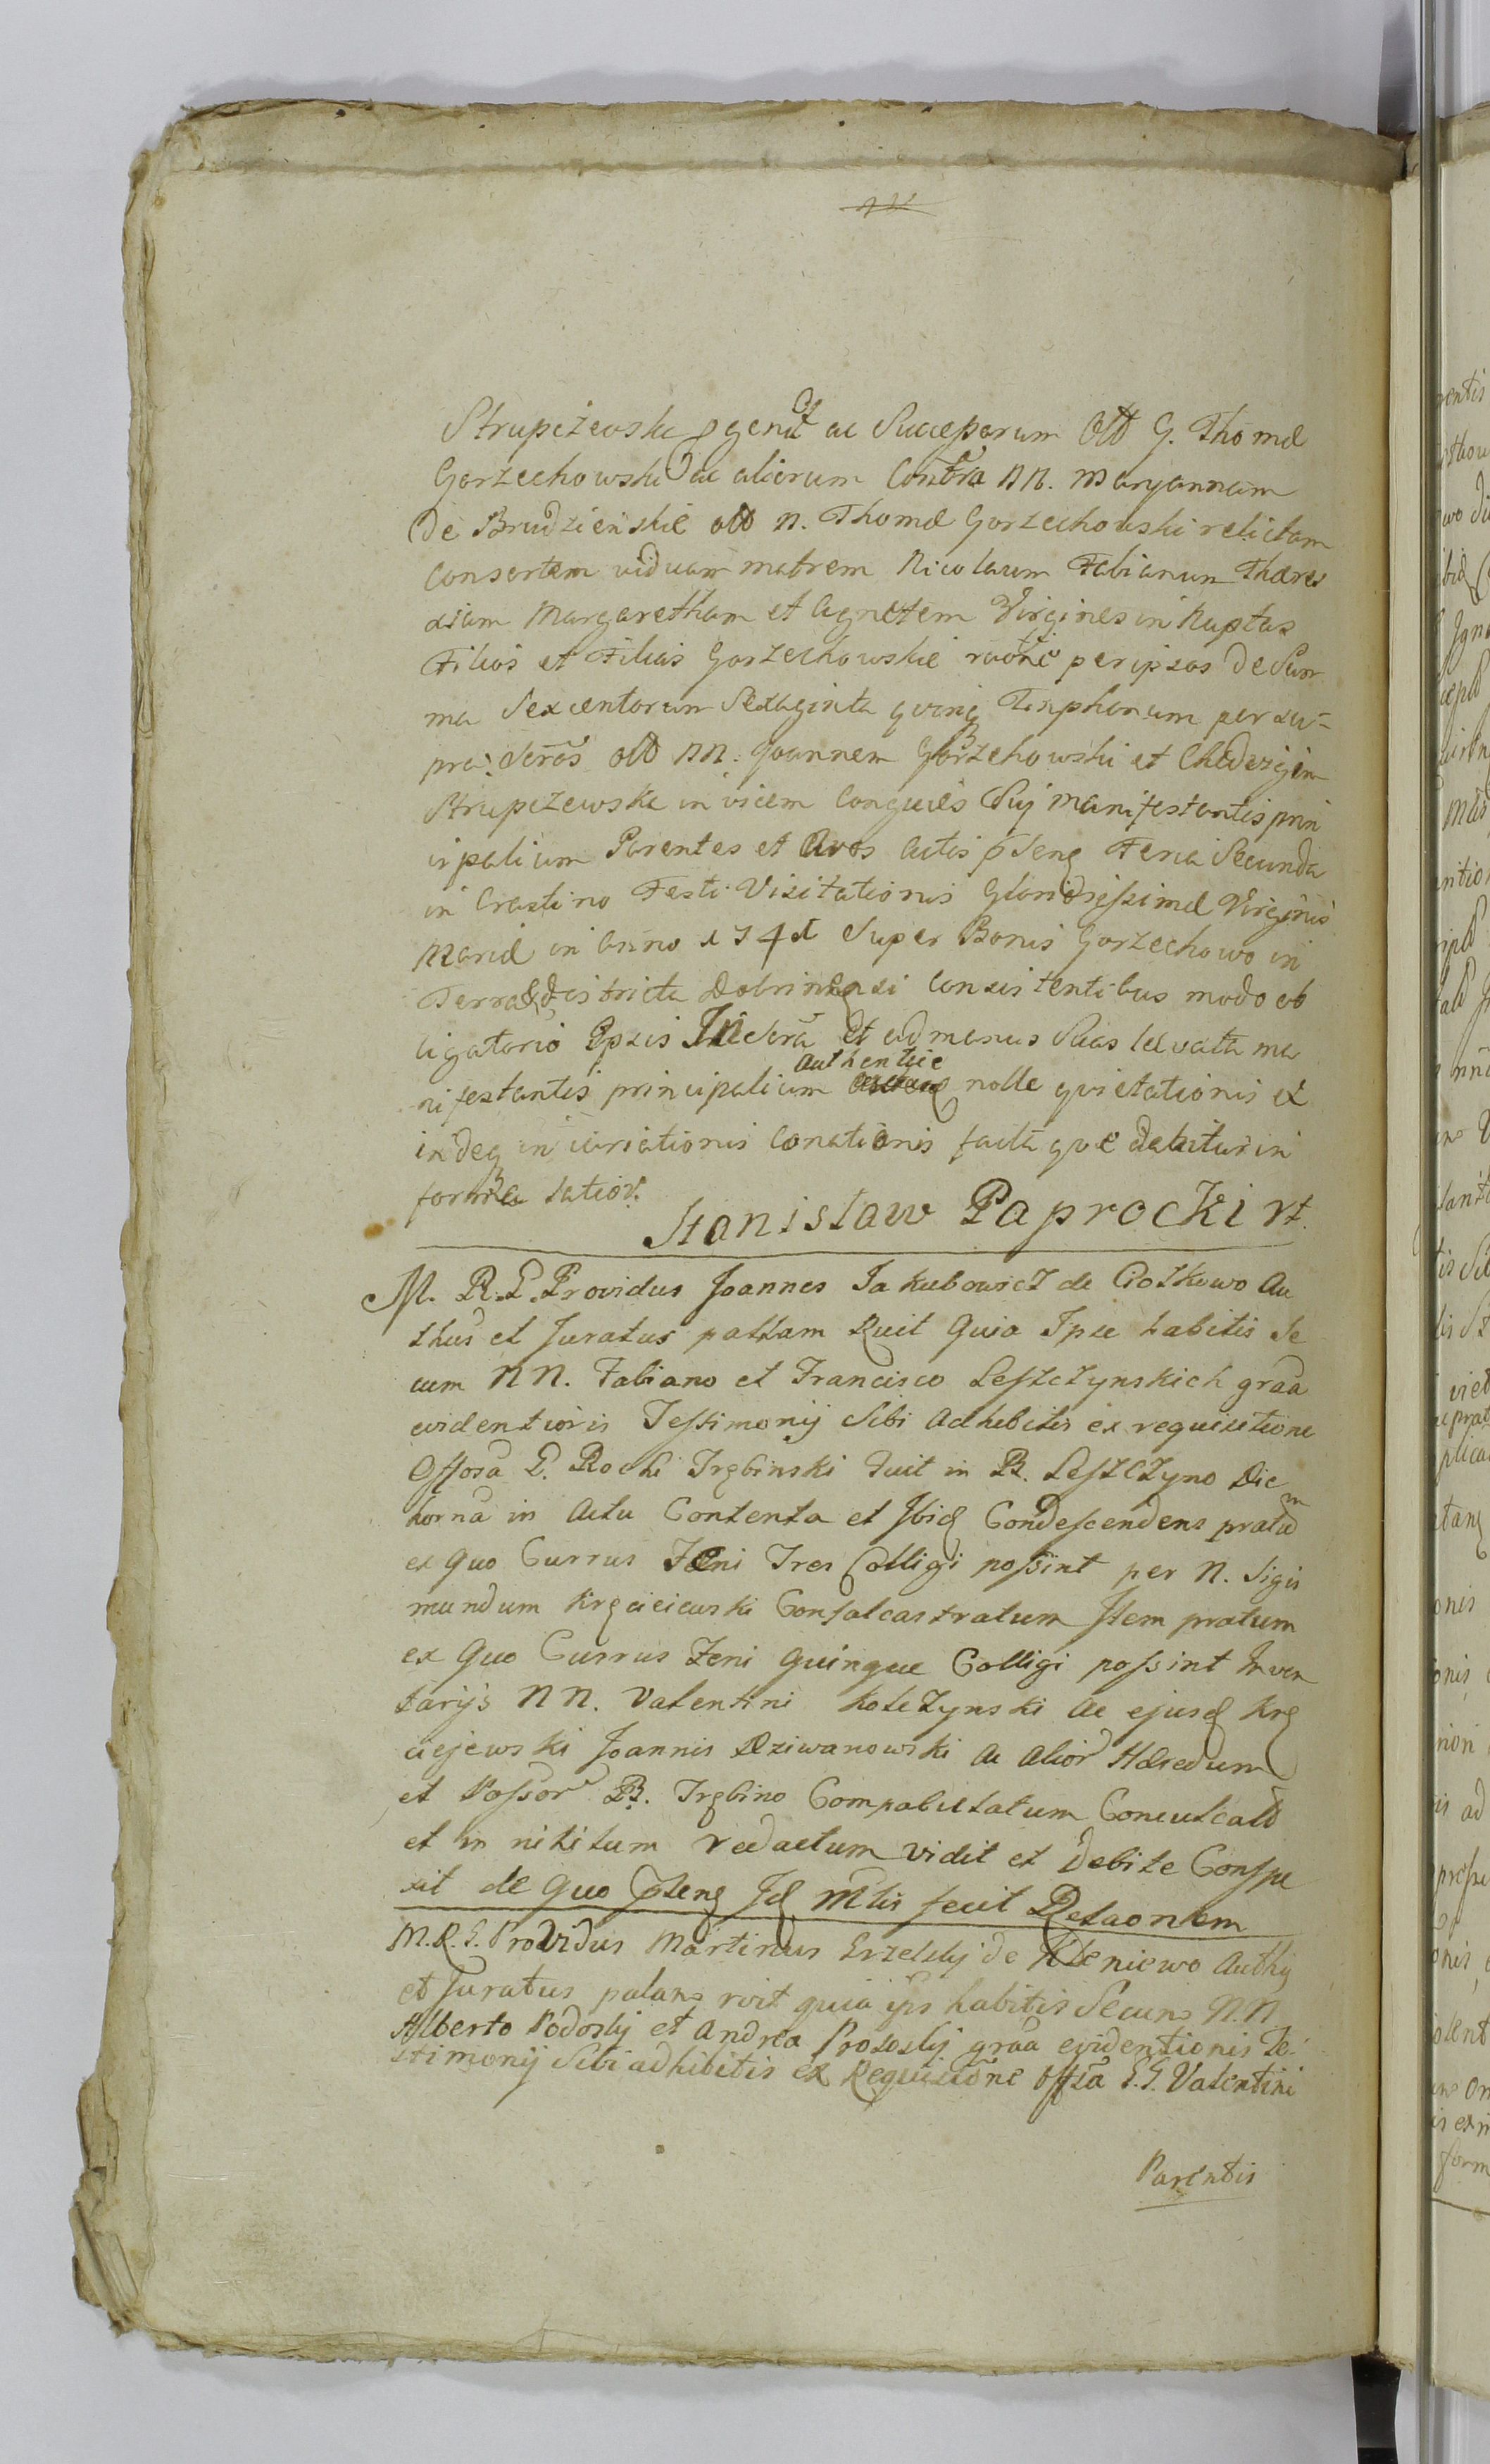 Strupczewski pgenit ac Successorum Old G. Thomæ
Gorzechowski ac aliorum Contra NN. Maryannam
de Brudzienskie old N. Thomæ Gorzechowski relictam
Consortem viduam matrem Nicolaum Fabianum Theres
siam Margaretham et Agnetem Virgines in Nuptas
Filios et Filias Gorzechowskie raõne per ipsos de Sum
ma Sexcentorum Sexaginta quinq Tinphonum per su-
pra NN. Joannem Gorzechowski et
Strupczewska in vicem Conjuges Suj manifestantis prin
cipalium Parentes et Avos Actis psenq Feria Secunda
in Crastino Festi Visitationis Gloriosissimæ Virginis
Mariæ in Anno 174 Super Bonis Gorzechowo in
Terra & districtu Dobrinensi Consistentibus modo ob
ligatorio Ipsis et ad manus Suas levata ma
nifestantis principalium authentice nolle quietationis et
indeq Conationis facta qvæ dabitur in
forma latiori
Stanisław Paprocki rt.
M. R. E. Providus Joannes Jakubowicz de Ciołkowo Au
thus et Juratus pallam Ruit Quia Ipse habitis Se
cum NN. Fabiano et Francisco Leszczynskich graa
evidentioris Testimonij Sibi Adhibitis ex requisitione
Offosa E. Rochi Trębinski fuit in B. Leszczyno Die
horna in Actu Contenta et Ibid Condescendens pratum
ex Quo Currus Feni Tres Colligi possint per N. Sigis
mundum Kręcieiewski Confalcastratum Item pratum
ex Quo Currus Feni Quinque Colligi possint Inven
tarijs NN. Valentini Kolczynski ac ejusd Krę
ciejewski Joannis Dziwanowski ac Alior Hæredum
et Possor B. Trębino Compabulatum Conculcatd
et in nihilum redactum vidit et Debite Conspe
xit de Quo psenq Id Mtlis fecit Relaonem
M. R. E. Providus Martinus de Kleniewo Authq
et Juratus palam rvit quia ips habitis Secum N.N.
Alberto Podoskj et Andrea graa evidentionis Te-
stimonij Sibi adhibitis ex Requisitione Offsa E.G. Valentini
Parentis